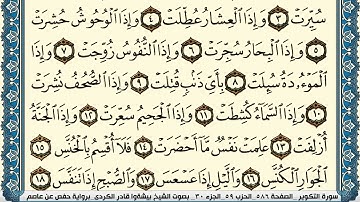 سُيِّرَتْ ٣ وَإِذَا ٱلْعِشَارُ عُطِّلَتْ ٤ وَإِذَا ٱلْوُحُوشُ حُشِرَتْ
٥ وَإِذَا ٱلْبِحَارُ سُجِّرَتْ ٦ وَإِذَا ٱلنُّفُوسُ زُوِّجَتْ ٧ وَإِذَا
ٱلْمَوْءُۥدَةُ سُئِلَتْ ٨ بِأَىِّ ذَنۢبٍ قُتِلَتْ ٩ وَإِذَا ٱلصُّحُفُ نُشِرَتْ
١٠ وَإِذَا ٱلسَّمَآءُ كُشِطَتْ ١١ وَإِذَا ٱلْجَحِيمُ سُعِّرَتْ ١٢ وَإِذَا ٱلْجَنَّةُ
أُزْلِفَتْ ١٣ عَلِمَتْ نَفْسٌ مَّآ أَحْضَرَتْ ١٤ فَلَآ أُقْسِمُ بِٱلْخُنَّسِ
١٥ ٱلْجَوَارِ ٱلْكُنَّسِ ١٦ وَٱلَّيْلِ إِذَا عَسْعَسَ ١٧ وَٱلصُّبْحِ إِذَا تَنَفَّسَ ١٨
سورة التكوير _ الصفحة ٥٨٦ _ الحزب ٥٩ _ الجزء ٣٠ _ بصوت الشيخ بيشةوا قادر الكردي _ برواية حفص عن عاصم